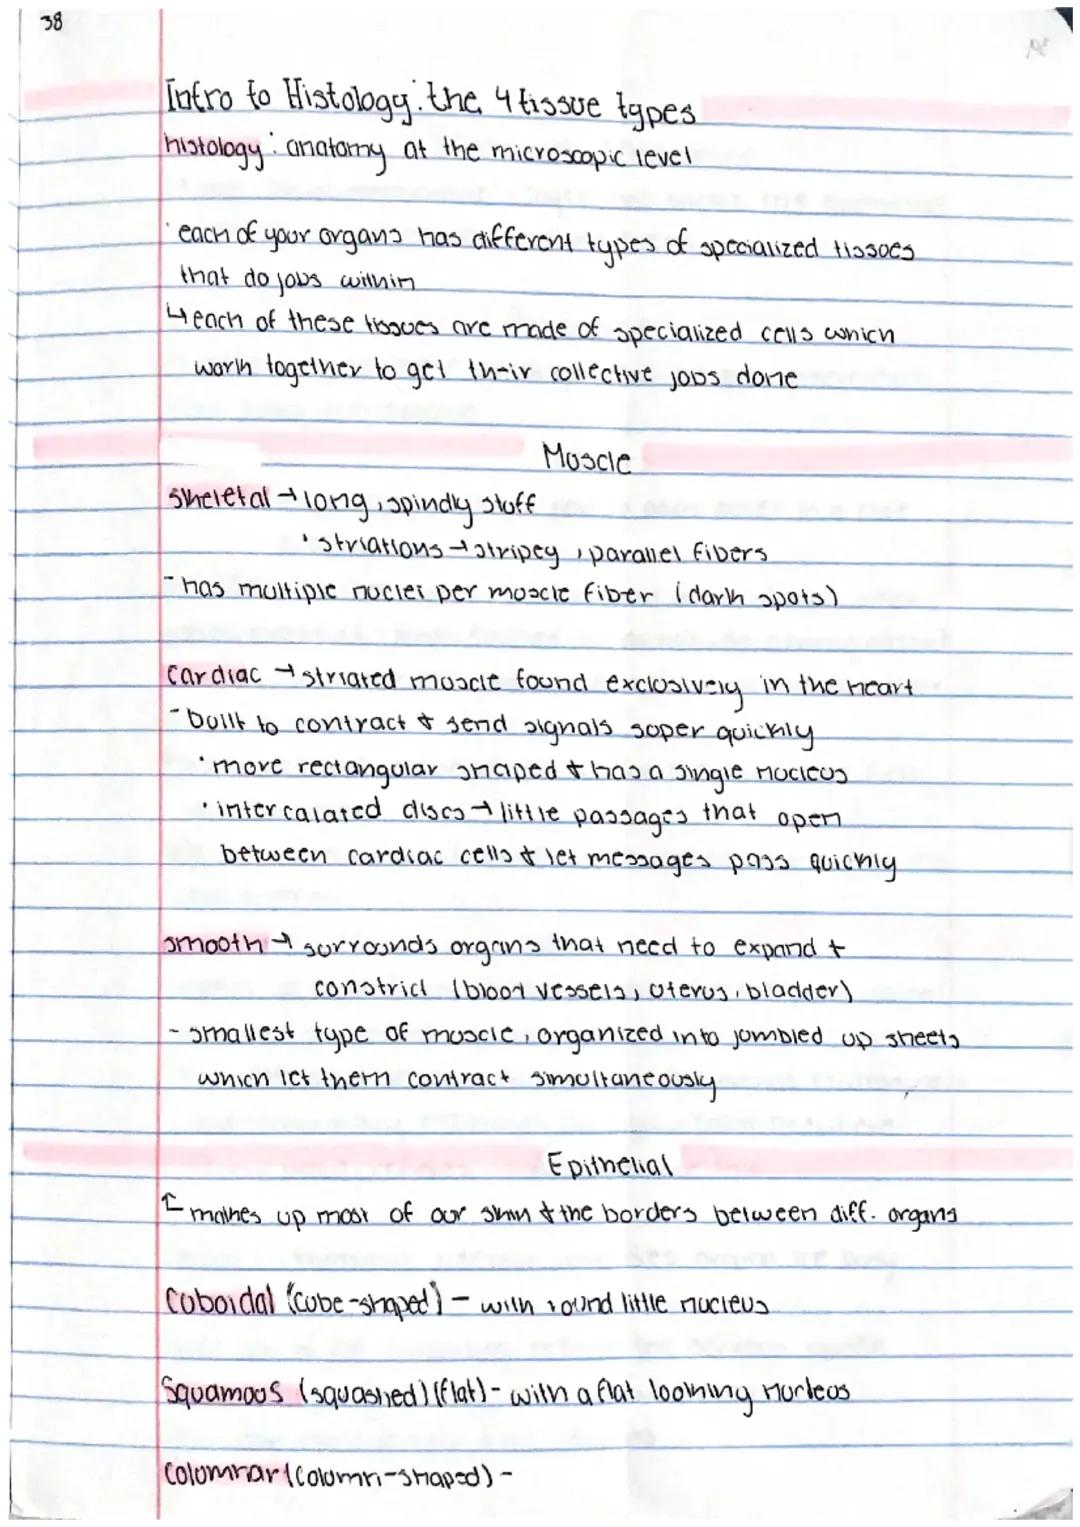 38
Intro to Histology: the 4 tissue types
histology: anatomy at the microscopic level
· each of your organs has different types of specialized tissues
that do jobs within
↳ each of these tissues are made of specialized cells which
work together to get their collective jobs done
Muscle
Skeletal → long, spindly stuff
· striations → stripey, parallel fibers
- has multiple nuclei per muscle fiber (dark spots)
Cardiac → striated muscle found exclusively in the heart
- built to contract + send signals super quickly
· more rectangular shaped + has a single nucleus
· intercalated discs → little passages that open
between cardiac cells + let messages pass quickly
smooth → surrounds organs that need to expand +
constrict (blood vessels, uterus, bladder)
- smallest type of muscle, organized into jumbled up sheets
which let them contract simultaneously
Epithelial
↑ makes up most of our skin + the borders between diff. organs
Cuboidal (cube-shaped) - with round little nucleus
Squamous (squashed) (flat) - with a flat looking nucleus
Columnar (column-shaped) -